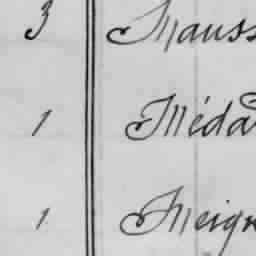 3 Mauss
1 Méda
1 Meign